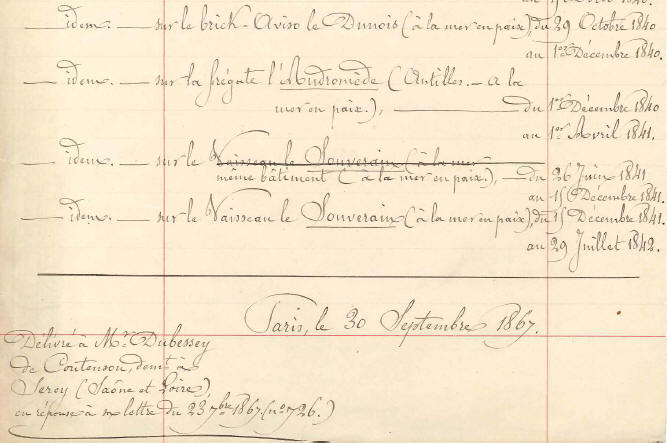 idem. — sur le brick-Aviso le Dunois (à la mer en paix), du 29 Octobre 1840
au 1er Décembre 1840.
idem. — sur la frégate l'Andromède (Antilles. — à la
mer en paix.), — du 1er Décembre 1840
au 1er Avril 1841.
idem. — sur le Vaisseau le Souverain (à la mer
même bâtiment (à la mer en paix), — du 26 Juin 1841
au 15 Décembre 1841.
idem. — sur le Vaisseau le Souverain (à la mer en paix), du 15 Décembre 1841.
au 29 Juillet 1842.
Paris, le 30 Septembre 1867.
Délivré à Mr. Dubessey
de Contenson, demt. à
(Saône et Loire)
en réponse à sa lettre du 23 7bre 1867 (no 726.)